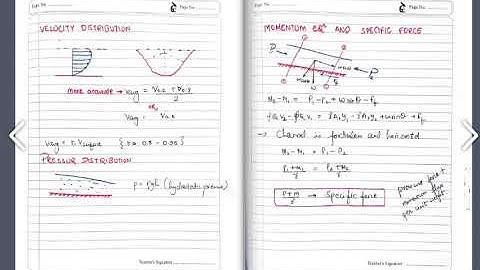 Page No.
VELOCITY DISTRIBUTION
more accurate → Vavg = V0.2 + V0.8 / 2
OR,
Vavg = V0.6
Vavg = k Vsurface { k = 0.8 - 0.95 }
PRESSURE DISTRIBUTION
p = ρgh (hydrostatic pressure)
Teacher's Signature
Page No.
MOMENTUM EQn AND SPECIFIC FORCE
M2 - M1 = P1 - P2 + W sinθ - Ff
ρQ V2 - ρQ V1 = γA1y1 - γA2y2 + W sinθ + Ff
→ Channel is frictionless and horizontal
M2 - M1 = P1 - P2
P1 + M1 / γ = P2 + M2 / γ
P + M / γ → Specific force
pressure force +
momentum flux
per unit weight
Teacher's Signature